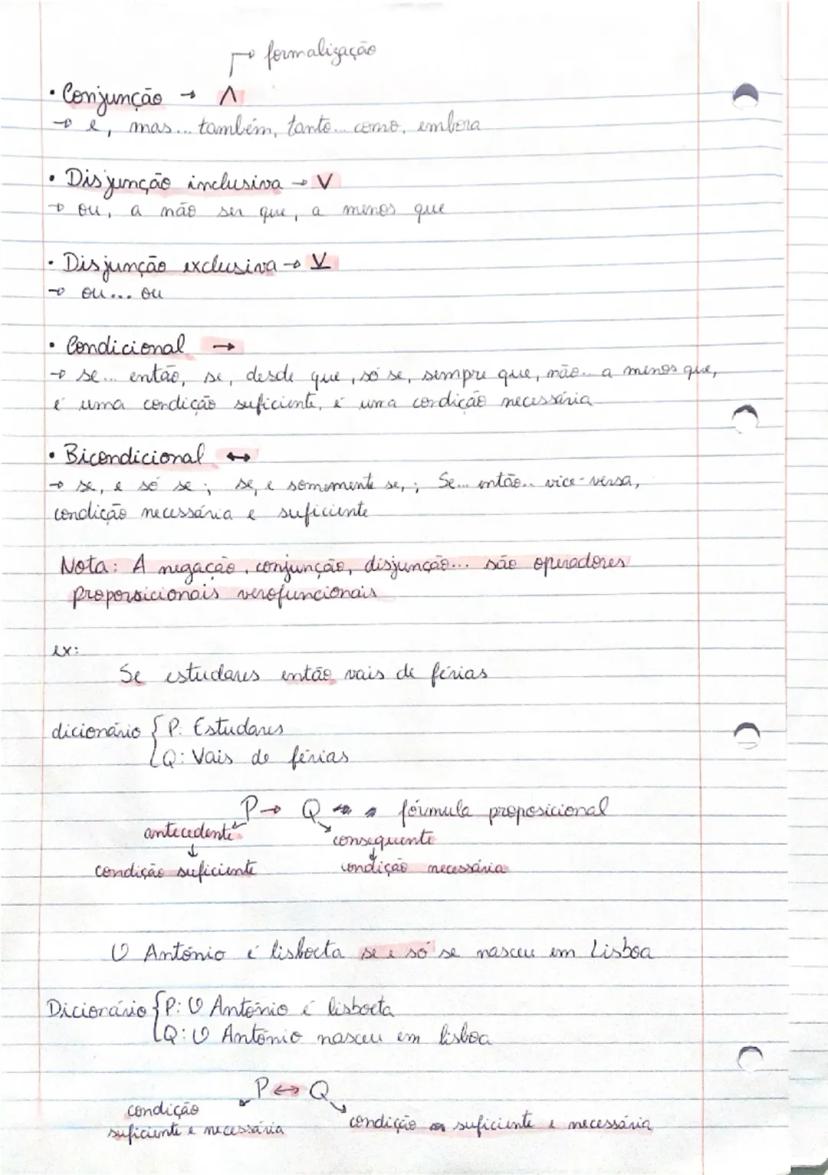 formalização
• Conjunção → ∧
→ e, mas... também, tanto... como, embora
• Disjunção inclusiva → ∨
→ ou, a não ser que, a menos que
• Disjunção exclusiva → ⊻
→ ou... ou
• Condicional →
→ se... então, se, desde que, só se, sempre que, não... a menos que,
é uma condição suficiente, é uma condição necessária
• Bicondicional ↔
→ se, e só se; se, e somomente se,; Se... então... vice-versa,
condição necessária e suficiente
Nota: A negação, conjunção, disjunção... são operadores
proporsicionais verofuncionais
ex:
Se estudares então vais de férias
dicionário { P: Estudares
Q: Vais de férias
P → Q → fórmula proposicional
antecedente consequente
condição suficiente condição necessária
O António é lisboeta se e só se nasceu em Lisboa
Dicionário { P: O António é lisboeta
Q: O António nasceu em lisboa
P ↔ Q
condição
suficiente e necessária condição suficiente e necessária